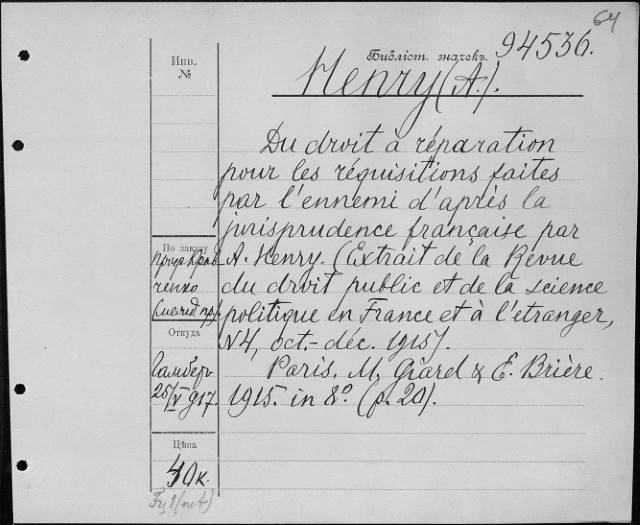 64
Библіот. значекъ. 94536.
Инв.
№
Henry (A.).
Du droit à réparation
pour les réquisitions faites
par l'ennemi d'après la
jurisprudence française par
A. Henry. (Extrait de la Revue
du droit public et de la science
politique en France et à l'etranger,
N4, oct.- déc. 1915).
Paris. M. Giard & E. Brière.
1915. in 8°. (p. 20).
По заказу
Крав-
ченко
Откуда
Гамберъ
25/V 917.
Цѣна
40 к.